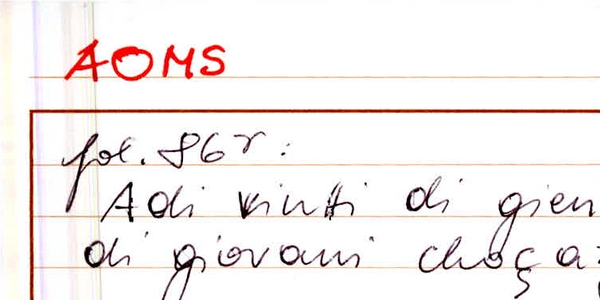 AOMS
fol. 86r:
Adi vinti di gien
di giovani choça